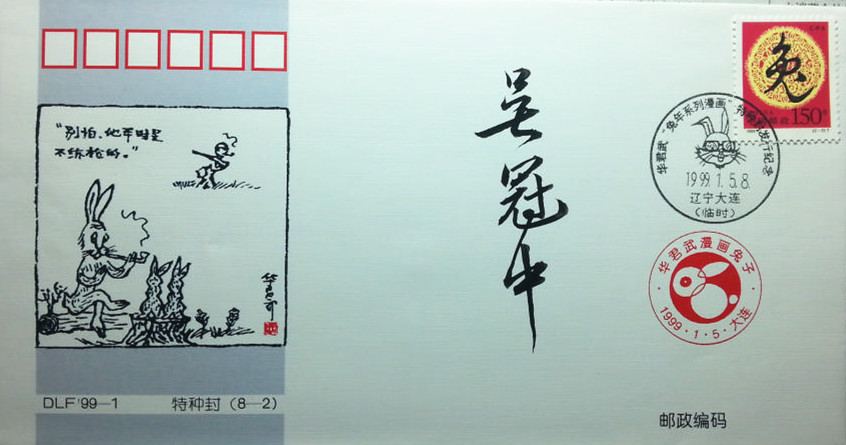 "别怕、他平时是
不练枪的。"
华君武
DLF'99—1
特种封（8—2）
吴冠中
兔
150分
华君武"兔年系列漫画"特种封发行纪念
1999.1.5.8.
辽宁大连
（临时）
·华君武漫画兔子·
1999·1·5·大连
邮政编码